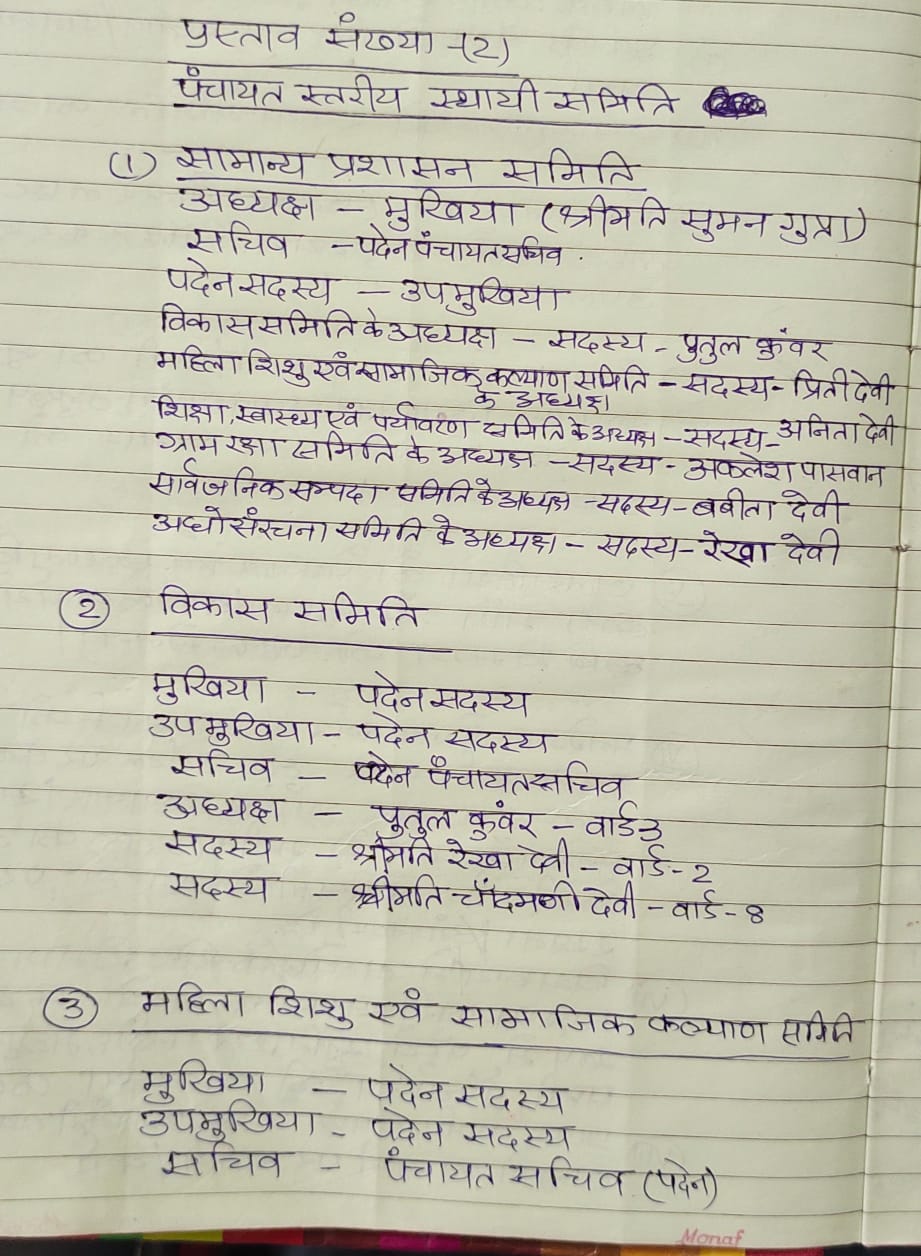 प्रस्ताव संख्या -(2)
पंचायत स्तरीय स्थायी समिति
(1) सामान्य प्रशासन समिति
अध्यक्ष - मुखिया (श्रीमति सुमन गुप्ता)
सचिव - पदेन पंचायत सचिव .
पदेन सदस्य - उपमुखिया
विकास समिति के अध्यक्ष - सदस्य - पुतुल कुंवर
महिला शिशु एवं सामाजिक कल्याण समिति - सदस्य - प्रिती देवी
के अध्यक्ष
शिक्षा, स्वास्थ्य एवं पर्यावरण समिति के अध्यक्ष - सदस्य - अनिता देवी
ग्राम रक्षा समिति के अध्यक्ष - सदस्य - अकलेश पासवान
सार्वजनिक सम्पदा समिति के अध्यक्ष - सदस्य - बबीता देवी
अधोसंरचना समिति के अध्यक्ष - सदस्य - रेखा देवी
(2) विकास समिति
मुखिया - पदेन सदस्य
उप मुखिया - पदेन सदस्य
सचिव - पदेन पंचायत सचिव
अध्यक्ष - पुतुल कुंवर - वार्ड 3
सदस्य - श्रीमति रेखा देवी - वार्ड - 2
सदस्य - श्रीमति चाँदमणी देवी - वार्ड - 8
(3) महिला शिशु एवं सामाजिक कल्याण समिति
मुखिया - पदेन सदस्य
उपमुखिया - पदेन सदस्य
सचिव - पंचायत सचिव (पदेन)
Monaf